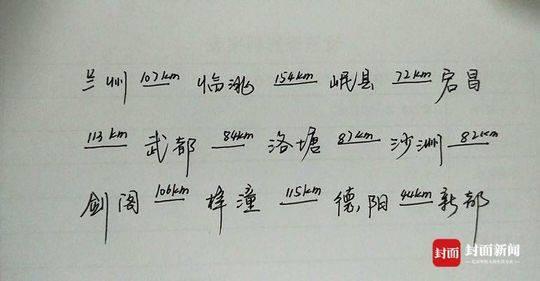 兰州 107km 临洮 154km 岷县 72km 宕昌
113km 武都 84km 洛塘 87km 沙洲 82km
剑阁 106km 梓潼 115km 德阳 44km 新都
封面 封面新闻